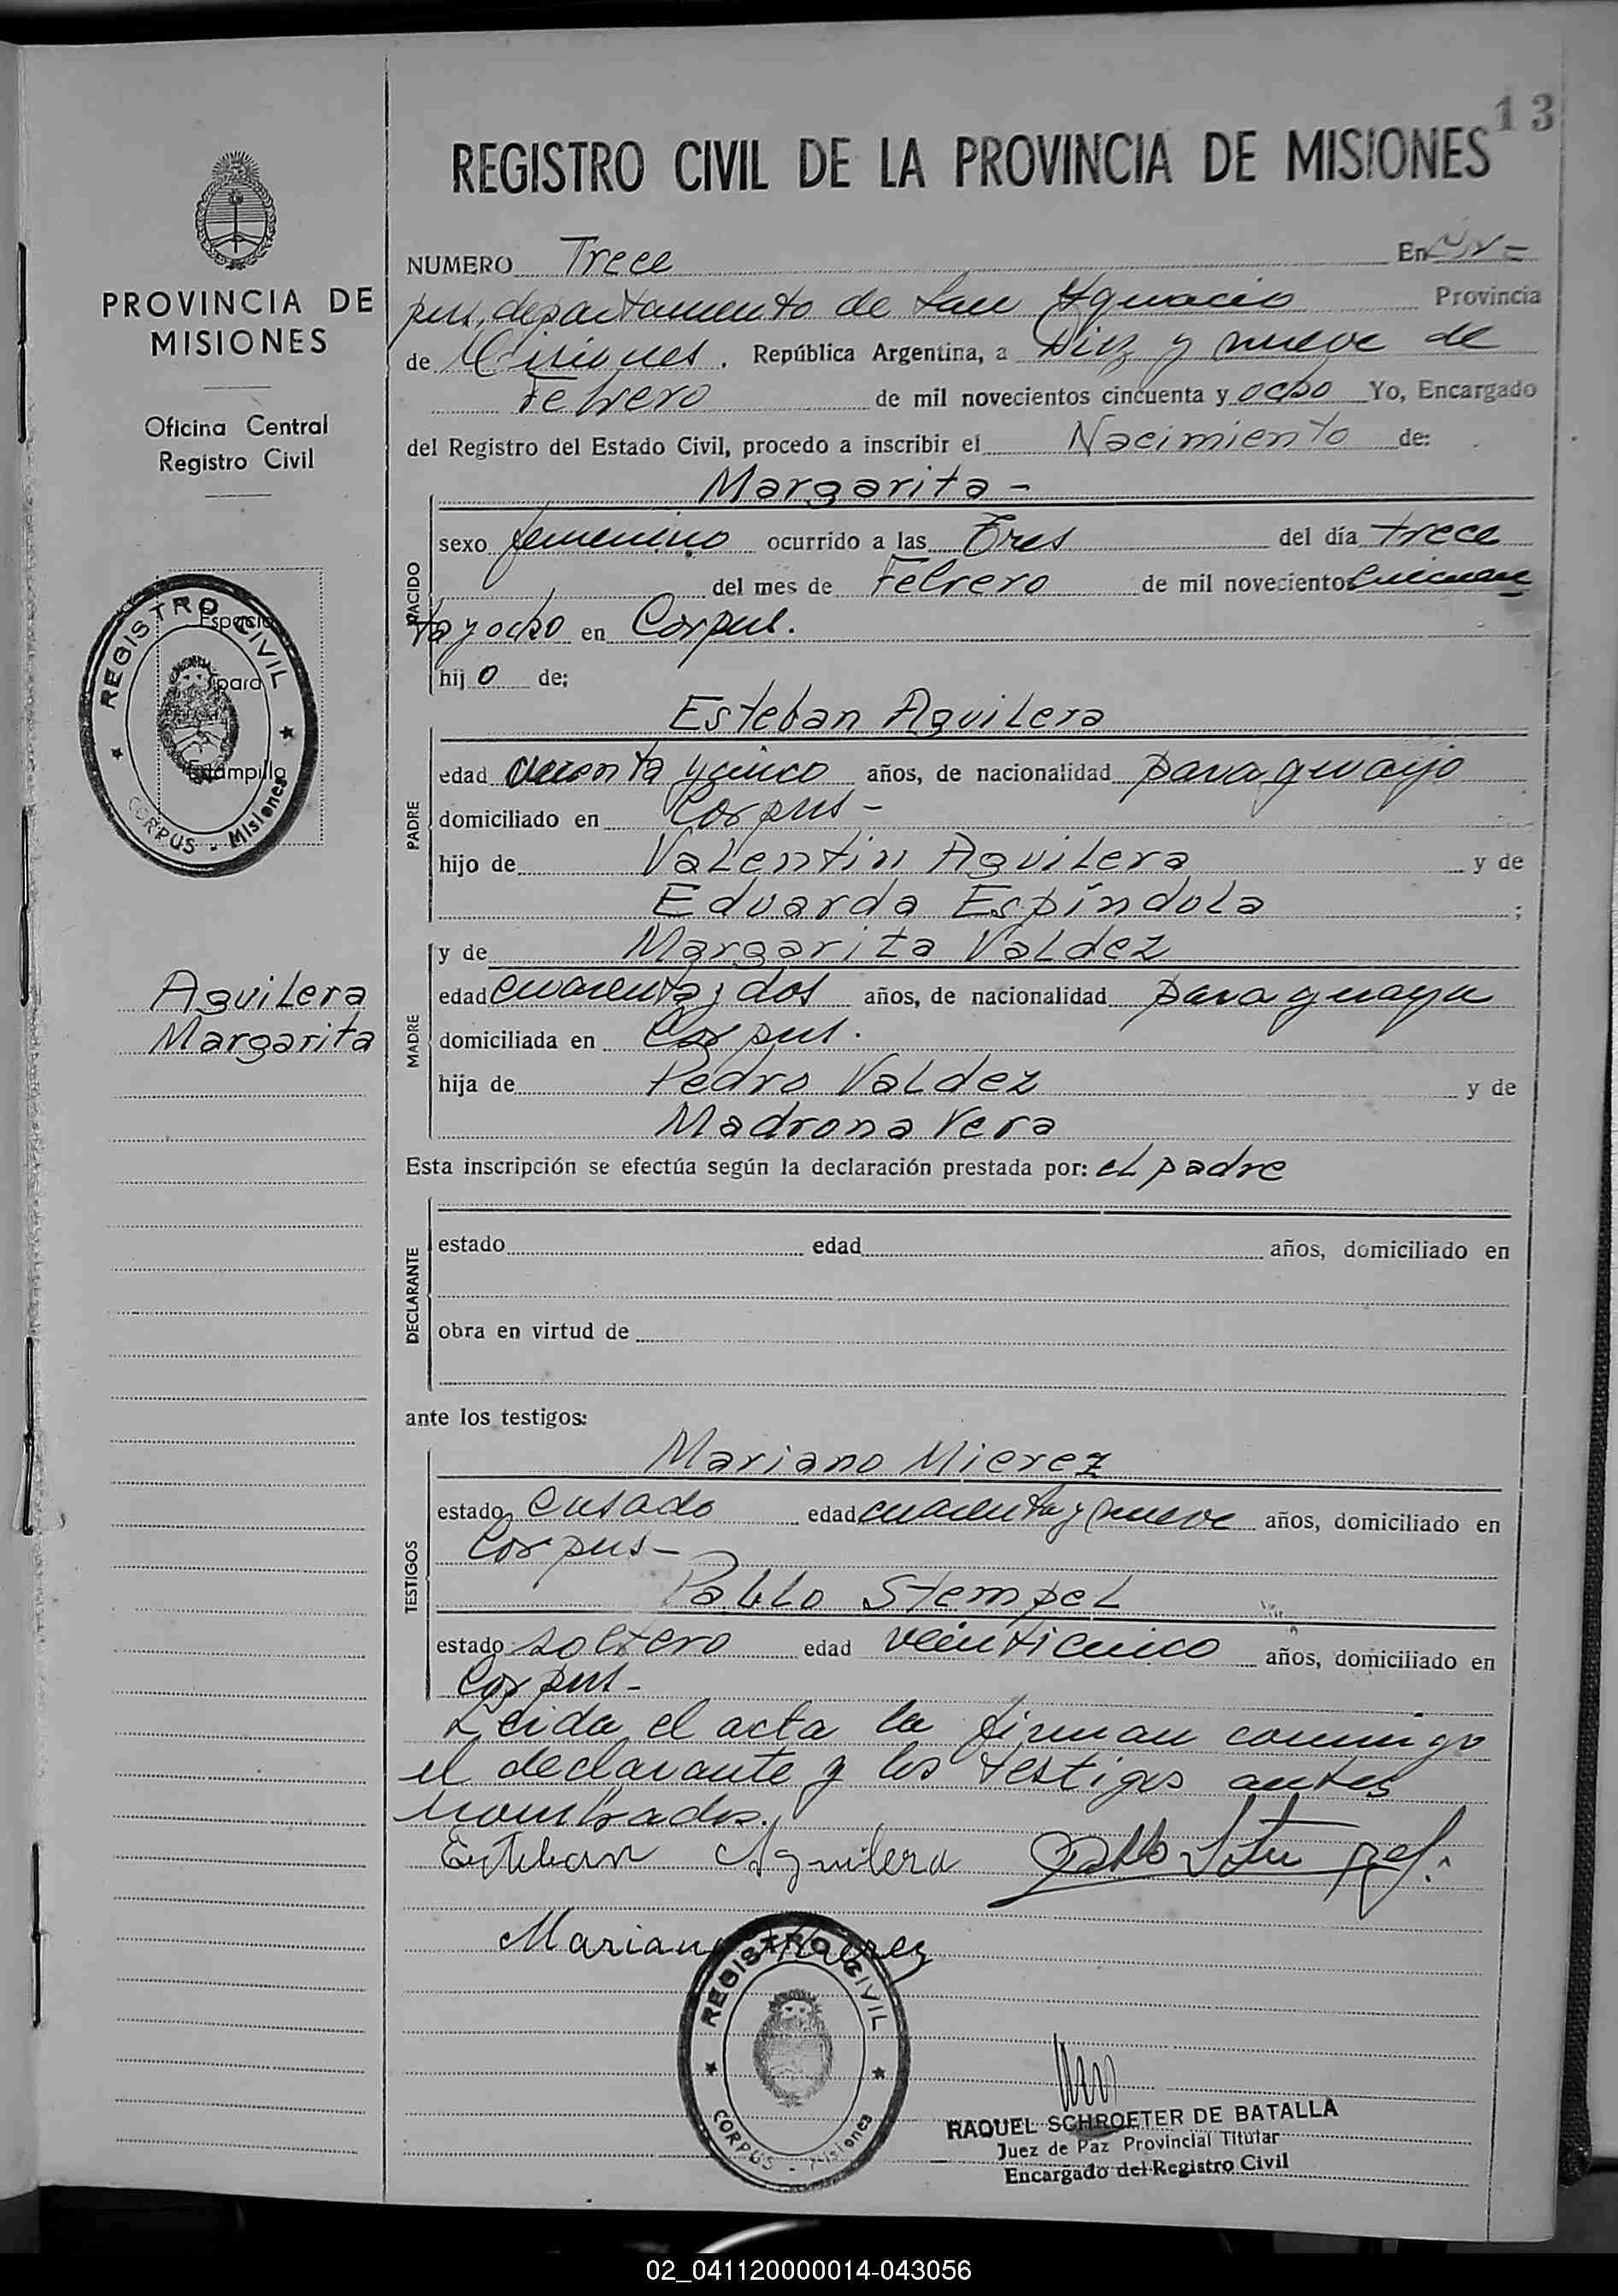 13
REGISTRO CIVIL DE LA PROVINCIA DE MISIONES
PROVINCIA DE
MISIONES
Oficina Central
Registro Civil
NUMERO Trece En Cor=
pus, departamento de San Ignacio Provincia
de Misiones. República Argentina, a Diez y nueve de
Febrero de mil novecientos cincuenta y ocho Yo, Encargado
del Registro del Estado Civil, procedo a inscribir el Nacimiento de:
NACIDO
Margarita -
sexo femenino ocurrido a las Tres del día trece
del mes de Febrero de mil novecientos cincuen
ta y ocho en Corpus.
hij o de;
REGISTRO CIVIL
Espacio
para
Estampilla
CORPUS - Misiones
PADRE
Esteban Aguilera
edad cuarenta y cinco años, de nacionalidad paraguayo
domiciliado en Corpus -
hijo de Valentin Aguilera y de
Eduarda Espíndola ;
MADRE
y de Margarita Valdez
edad cuarenta y dos años, de nacionalidad paraguaya
domiciliada en Corpus.
hija de Pedro Valdez y de
Madrona Vera
Aguilera
Margarita
Esta inscripción se efectúa según la declaración prestada por: el padre
DECLARANTE
estado edad años, domiciliado en
obra en virtud de
ante los testigos:
TESTIGOS
Mariano Mierez
estado casado edad cuarenta y nueve años, domiciliado en
Corpus -
Pablo Stempel
estado soltero edad veinticinco años, domiciliado en
Corpus -
Leida el acta la firman conmigo
el declarante y los testigos antes
nombrados.
Esteban Aguilera Pablo Stempel.
Mariano Mierez
REGISTRO CIVIL
CORPUS - Misiones
RAQUEL SCHROETER DE BATALLA
Juez de Paz Provincial Titular
Encargado del Registro Civil
02_041120000014-043056